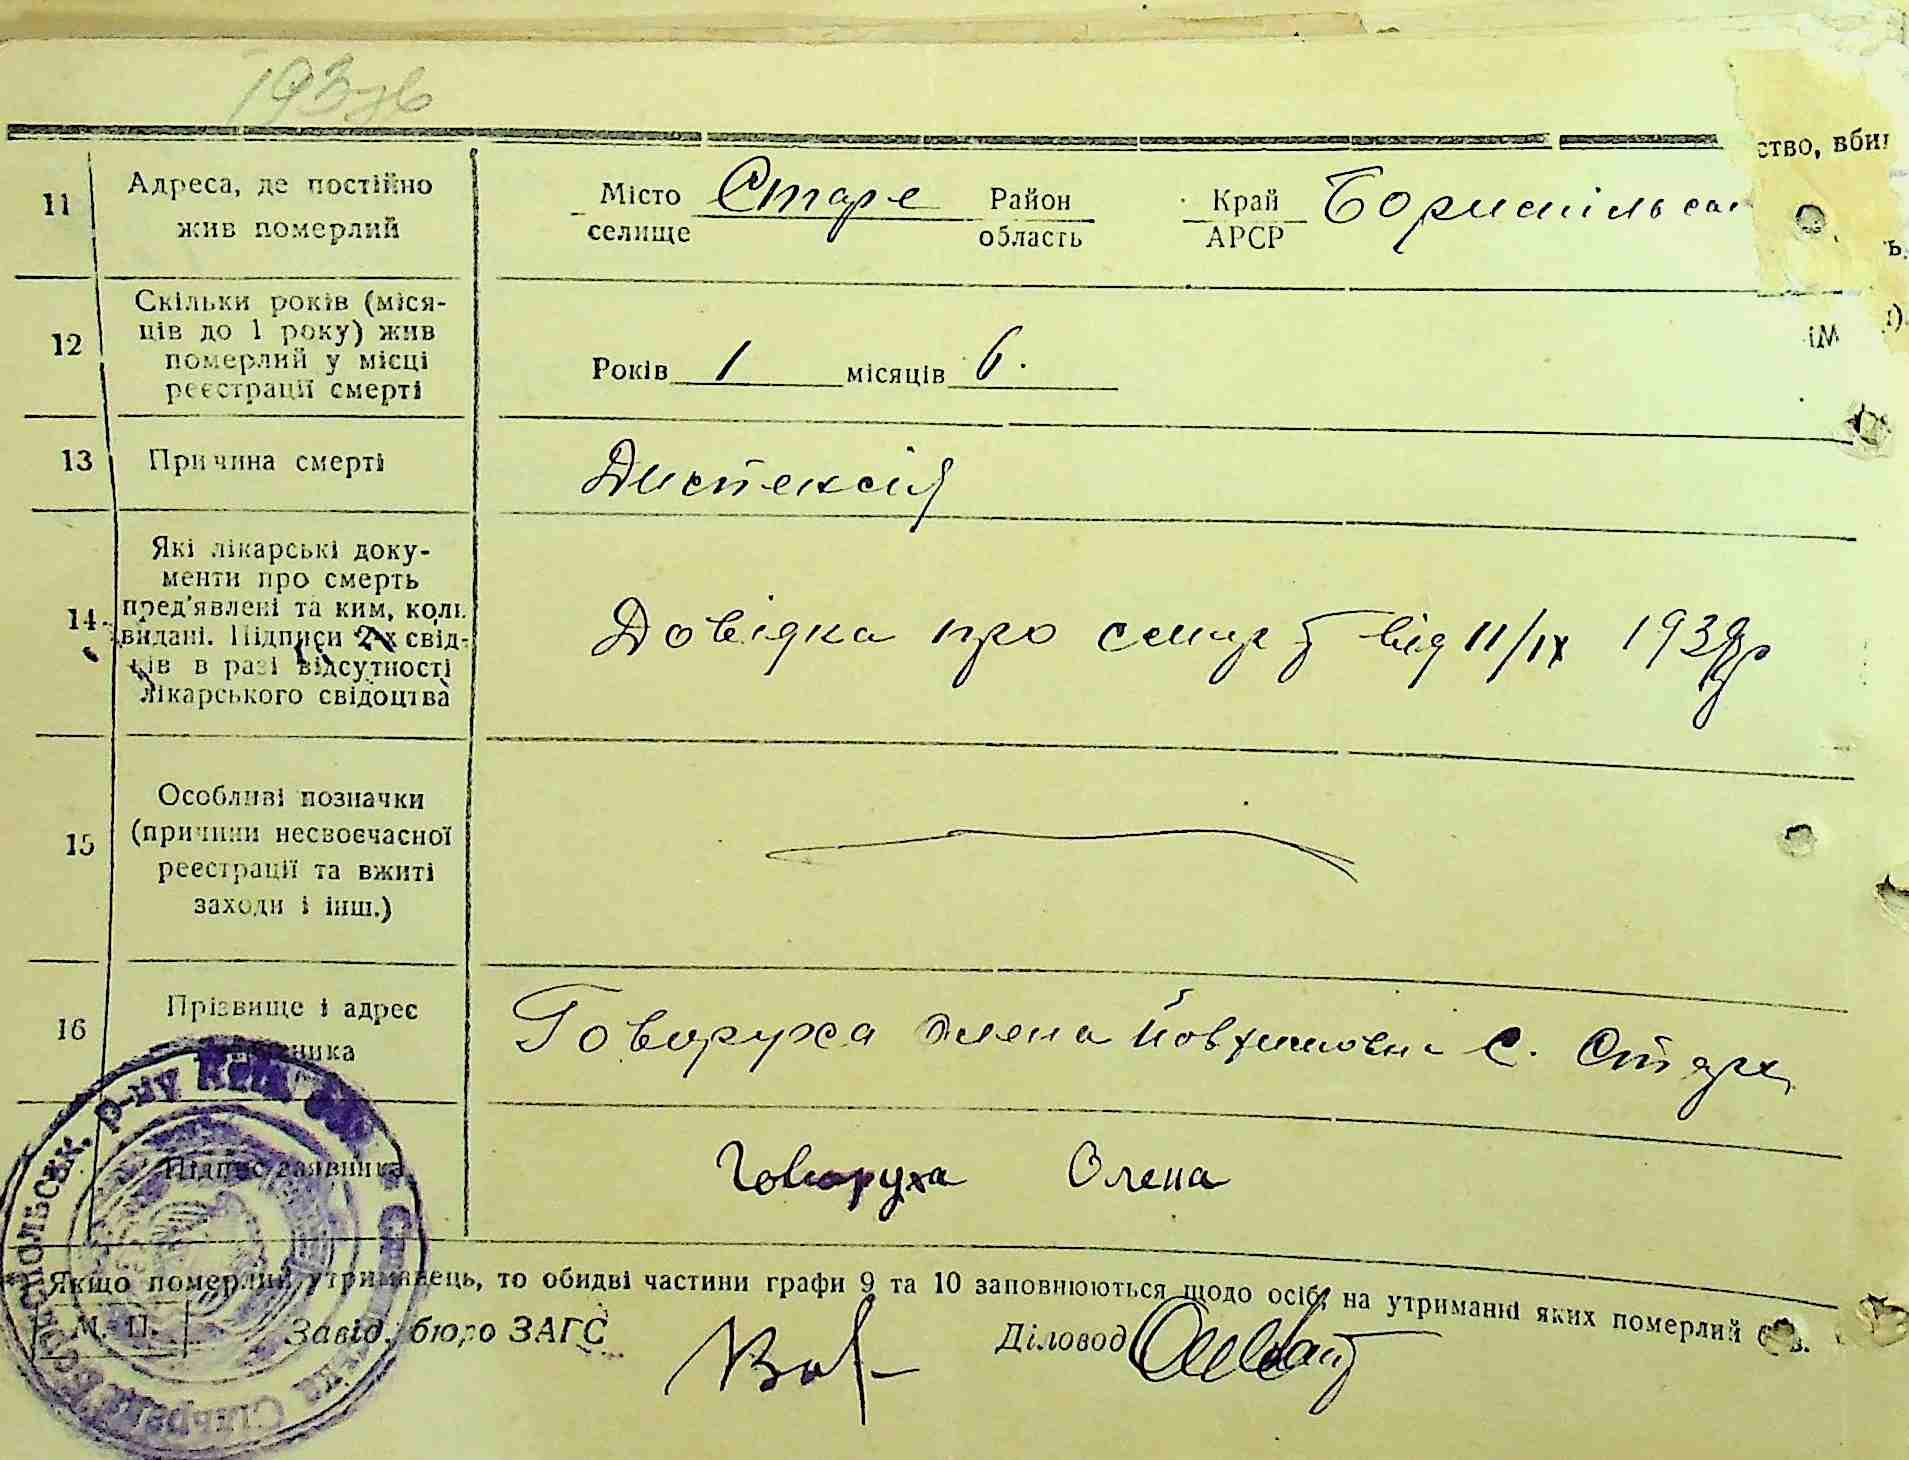 193
ство, вби
11 Адреса, де постійно жив померлий
Місто селище Старе Район область Край АРСР Бориспільськ
12 Скільки років (міся-
ців до 1 року) жив
померлий у місці
реєстрації смерті
Років 1 місяців 6.
13 Причина смерті
Диспепсія
14. Які лікарські доку-
менти про смерть
пред'явлені та ким, коли
видані. Підписи 2-х свід-
ків в разі відсутності
лікарського свідоцтва
Довідка про смерть від 11/IX 193
15 Особливі позначки
(причини несвоєчасної
реєстрації та вжиті
заходи і інш.)
16 Прізвище і адрес
Говоруха Олена с. Старе
Підпис заявника
Говоруха Олена
Якщо померлий утриманець, то обидві частини графи 9 та 10 заповнюються щодо осіб, на утриманні яких померлий був.
М. П. Завід. бюро ЗАГС Діловод